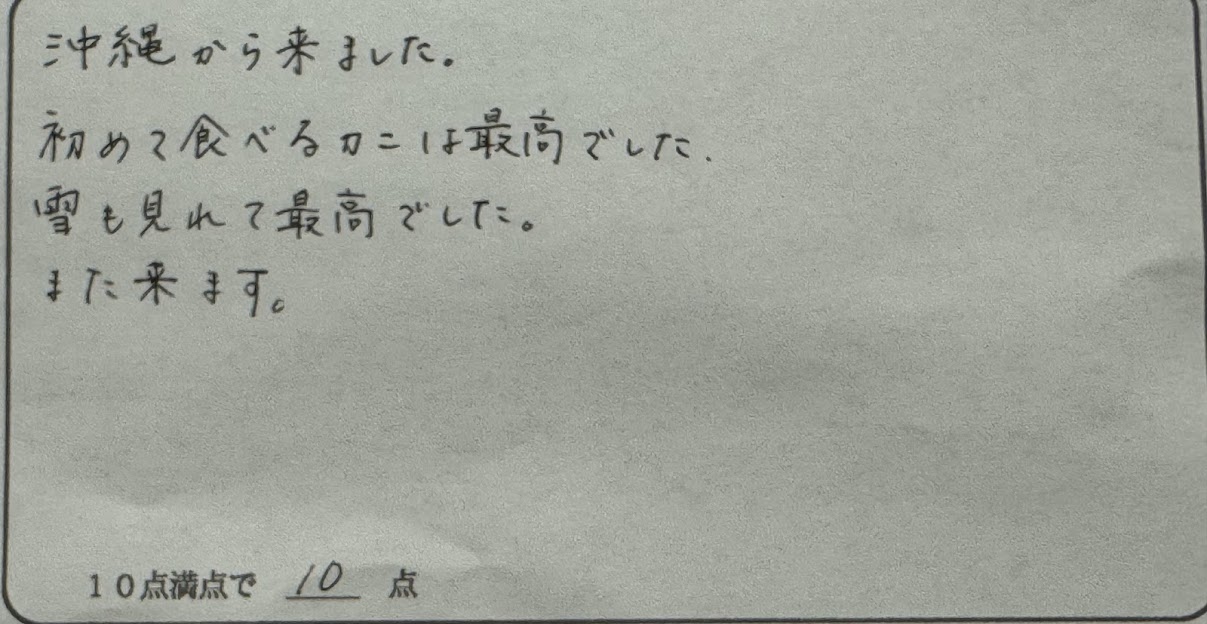 沖縄から来ました。
初めて食べるカニは最高でした.
雪も見れて最高でした。
また来ます。
10点満点で 10 点